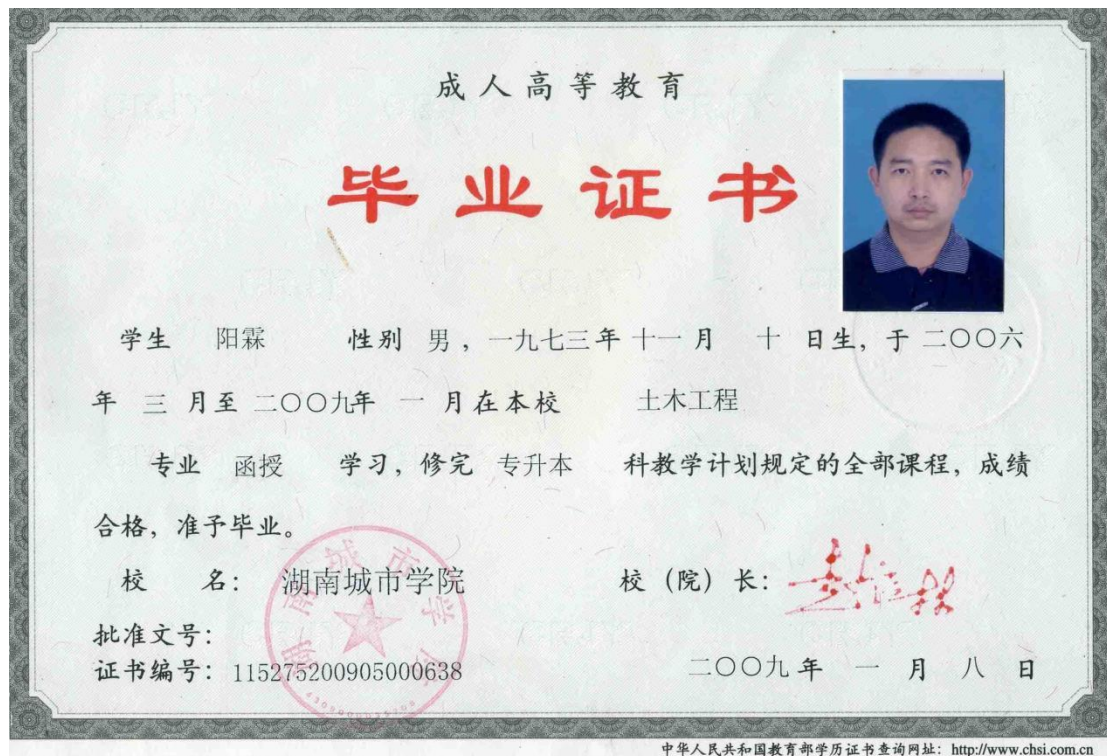 成人高等教育
毕业证书
学生 阳霖 性别 男，一九七三年 十一月 十 日生，于 二〇〇六
年 三 月至 二〇〇九年 一 月在本校 土木工程
专业 函授 学习，修完 专升本 科教学计划规定的全部课程，成绩
合格，准予毕业。
校 名： 湖南城市学院 校（院）长：
批准文号：
证书编号：115275200905000638 二〇〇九年 一 月 八 日
湖南城市学院
中华人民共和国教育部学历证书查询网址：http://www.chsi.com.cn